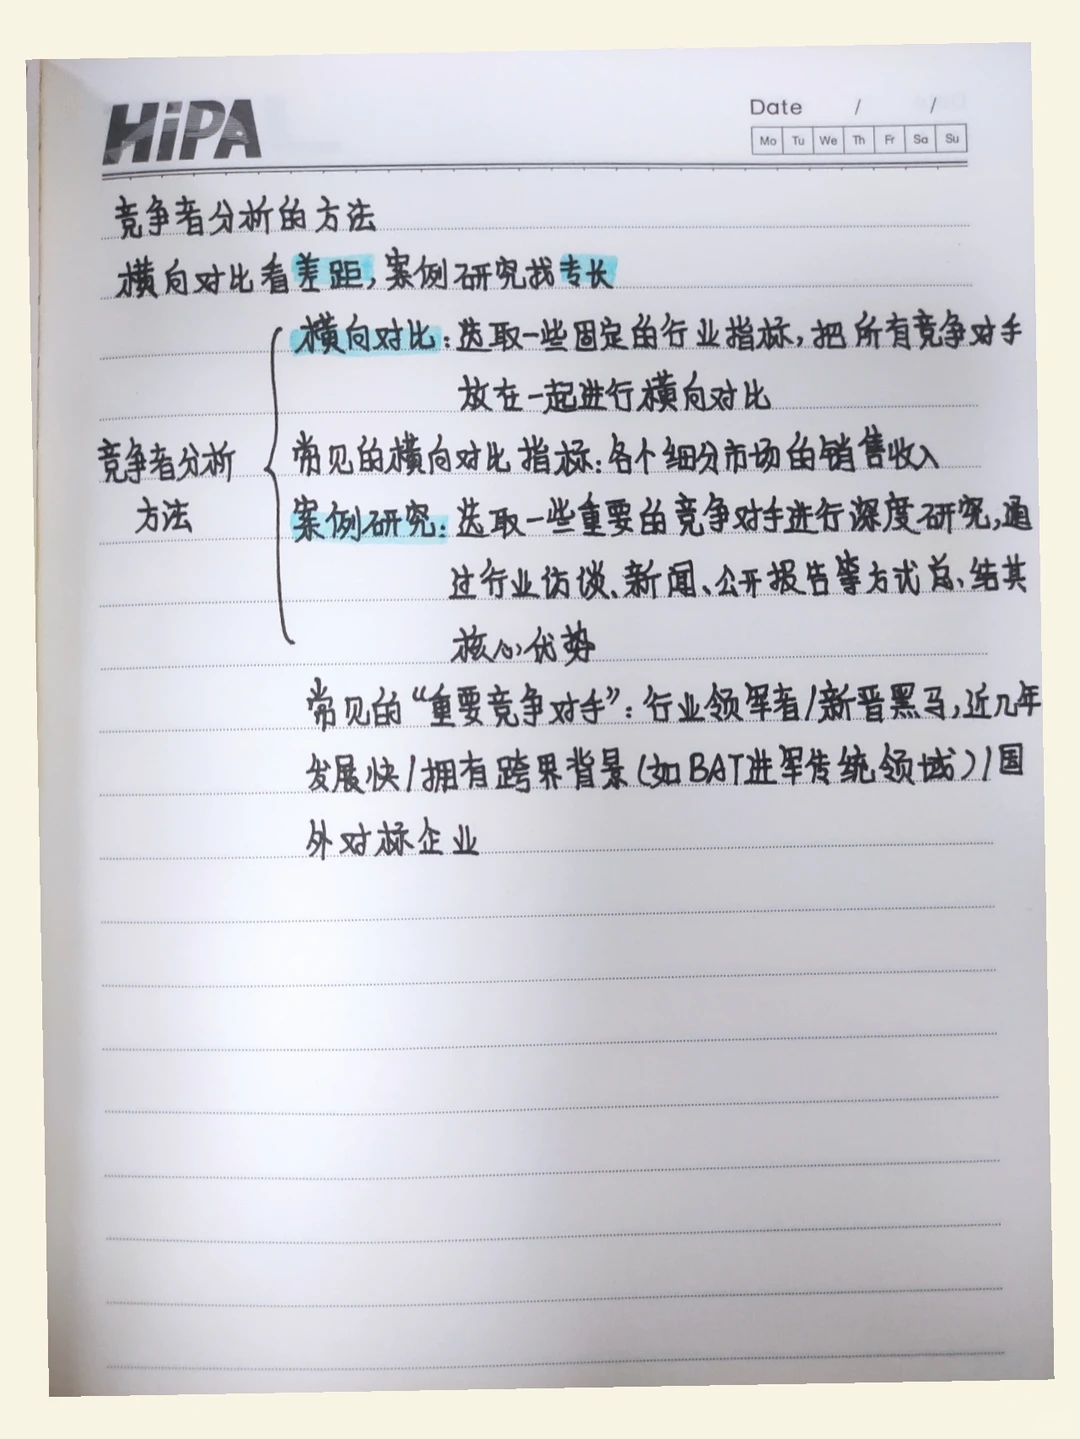 HiPA
Date / /
Mo Tu We Th Fr Sa Su
竞争者分析的方法
横向对比看差距,案例研究找专长
横向对比:选取一些固定的行业指标,把所有竞争对手
放在一起进行横向对比
竞争者分析
方法
常见的横向对比指标:各个细分市场的销售收入
案例研究:选取一些重要的竞争对手进行深度研究,通
过行业访谈、新闻、公开报告等方式总、结其
核心优势
常见的“重要竞争对手”:行业领军者/新晋黑马,近几年
发展快/拥有跨界背景(如BAT进军传统领域)/国
外对标企业